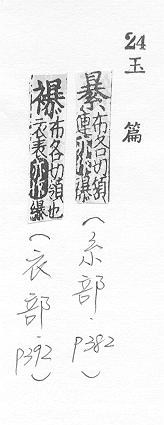 24
玉篇
暴 布各切領連亦作襮
(糸部.P382)
襮 布各切領也衣表亦作𧝑
(衣部.P392)